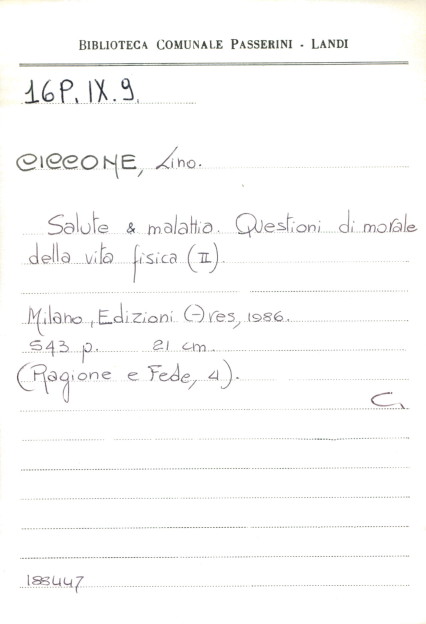 BIBLIOTECA COMUNALE PASSERINI - LANDI
16P. IX. 9.
CICCONE, Lino.
Salute & malattia. Questioni di morale
della vita fisica (II).
Milano, Edizioni Ares, 1986.
543 p. 21 cm.
(Ragione e Fede, 4).
C.
188447